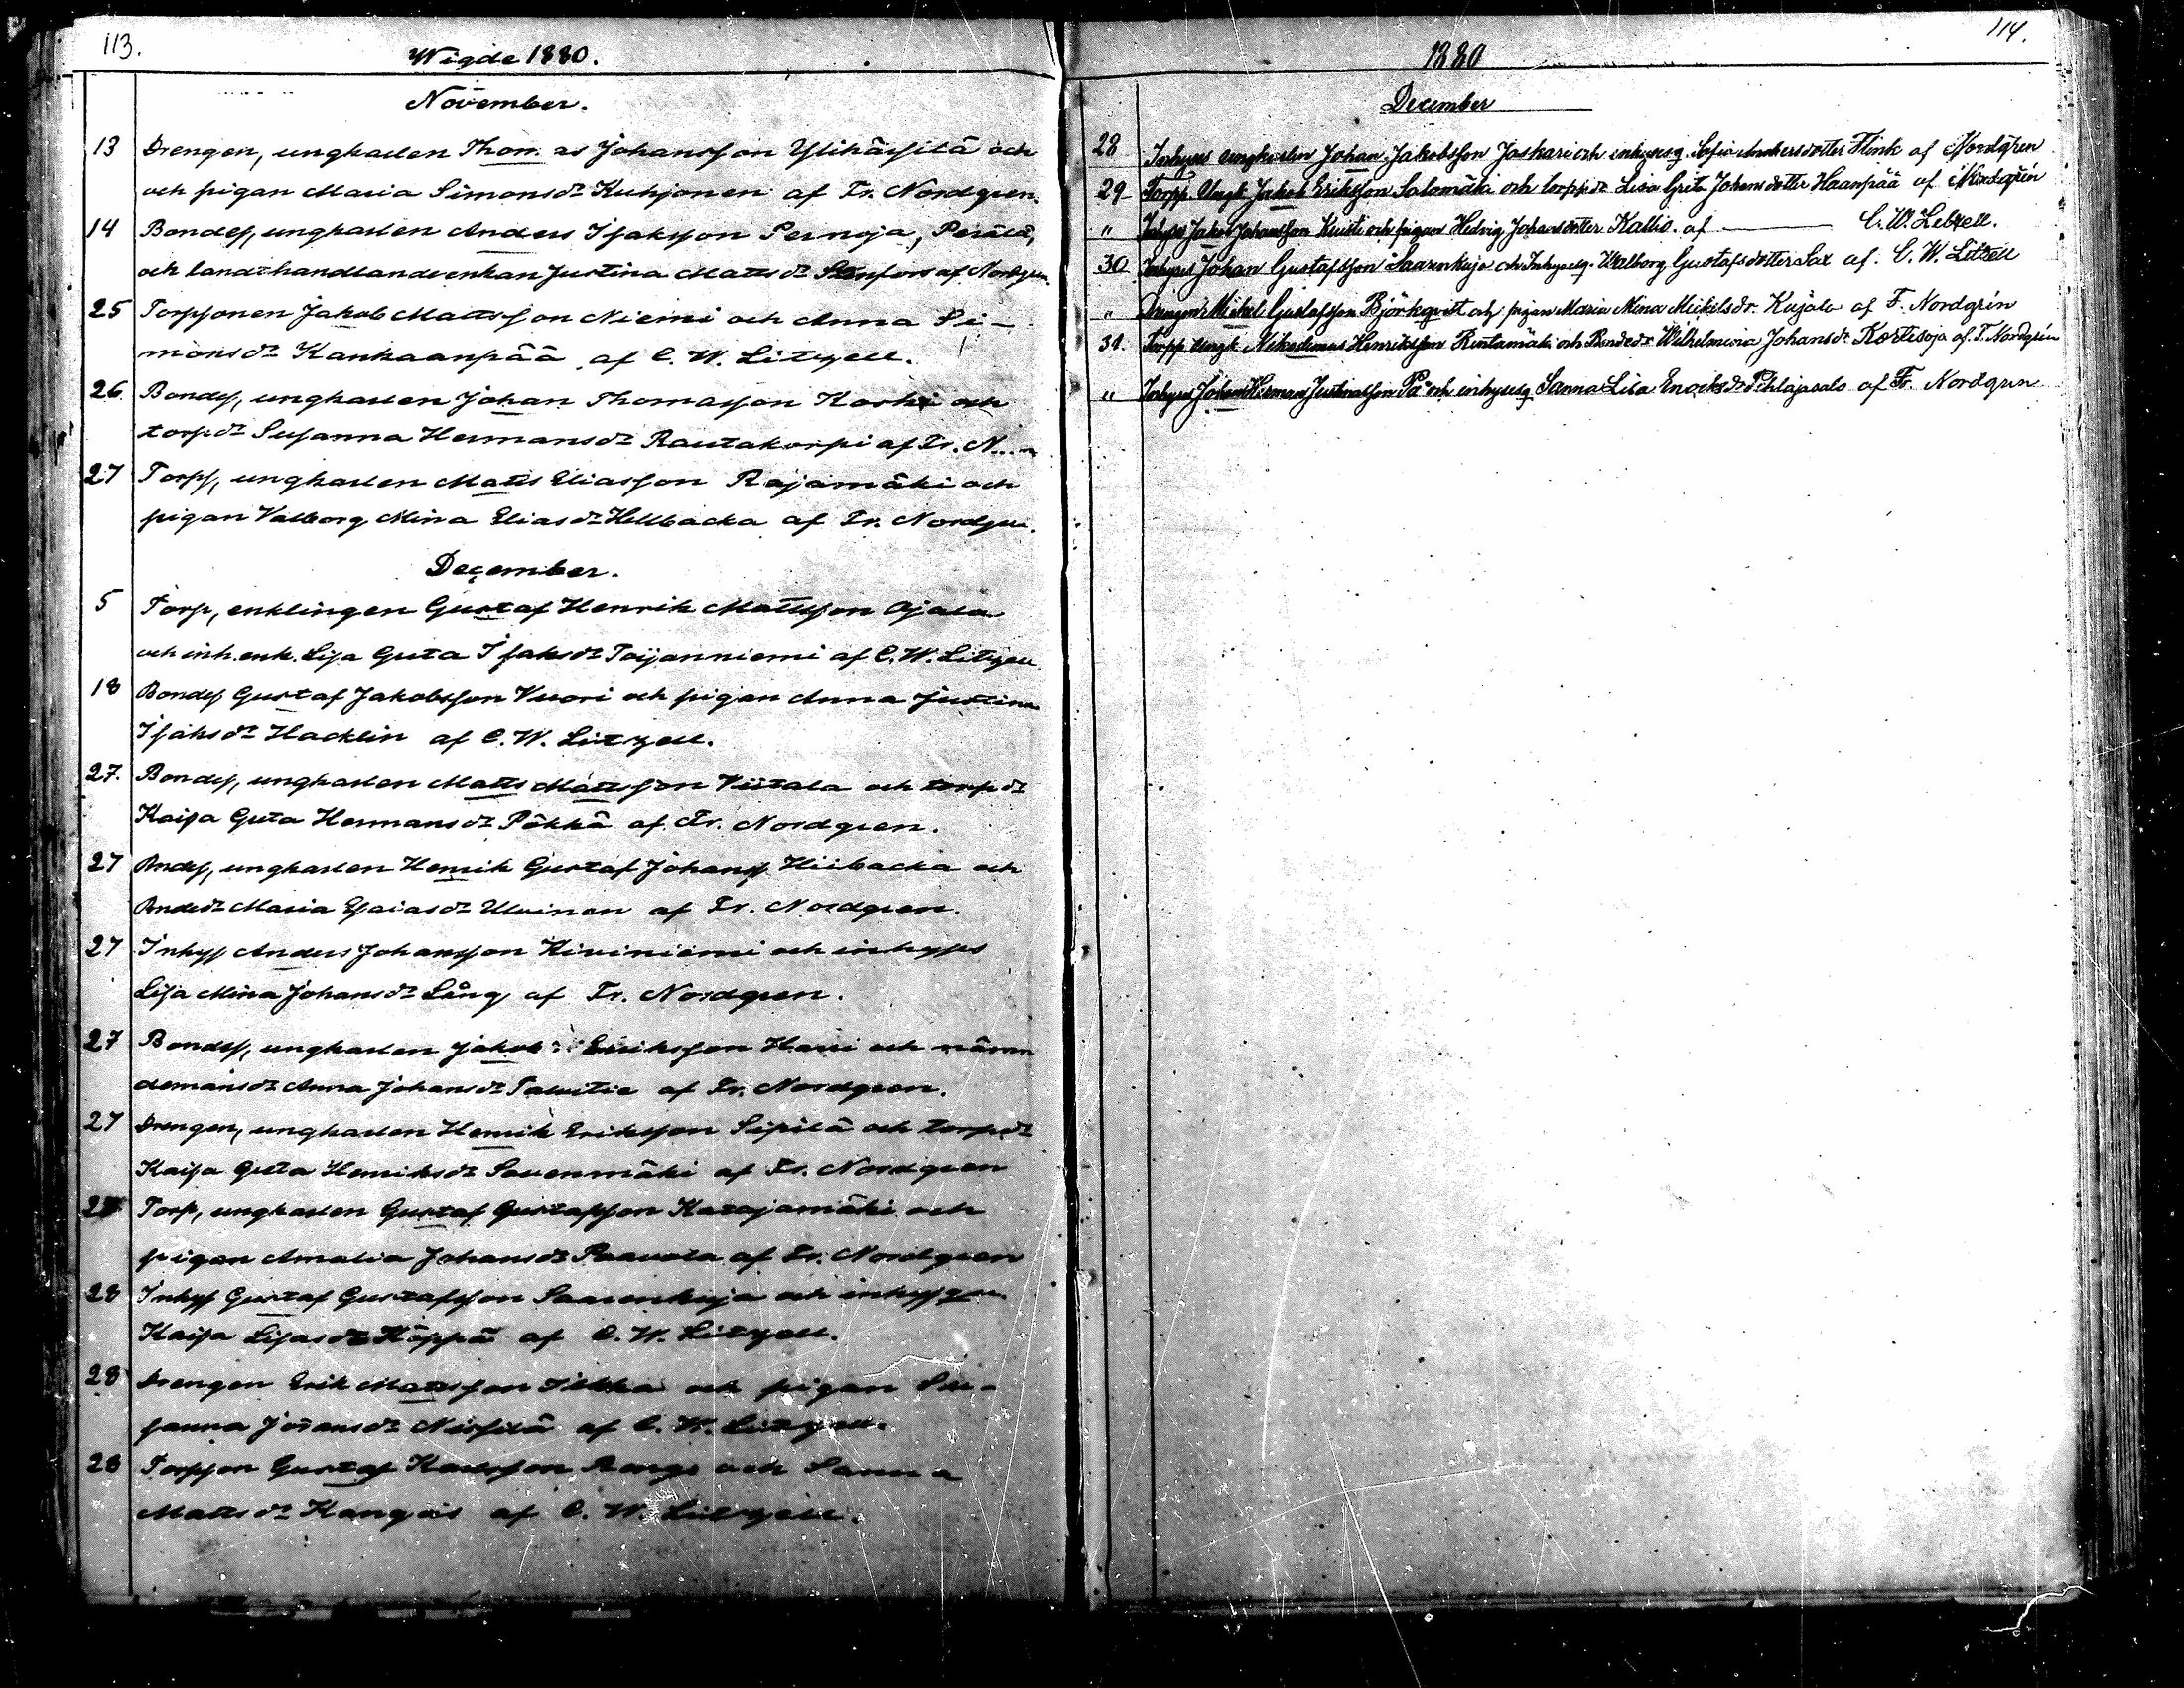 113.
Wigde 1880.
November.
13 Drengen, ungkarlen Thom as Johansson Ylihärsilä och
och pigan Maria Simonsdr Kuhjonen af Fr. Nordgren.
14 Bondes, ungkarlen Anders Isaksson Pernoja, Perälä,
och landthandlandeenkan Justina Matts dr Stenfors af Nordgren
25 Torpsonen Jakob Mattsson Niemi och Anna Si-
monsdr Kankaanpää af C. W. Litzell.
26 Bondes, ungkarlen Johan Thomasson Korhi och
torpdr Susanna Hermansdr Rautakorpi af Fr. N...n
27 Torps, ungkarlen Matts Eliasson Rajamäki och
pigan Valborg Mina Eliasdr Hellbacka af Fr. Nordgren.
December.
5 Torp, enklingen Gustaf Henrik Mattsson Ojala
och inh. enk. Lisa Greta Isaksdr Toijanniemi af C. W. Litzell
18 Bondes Gustaf Jakobsson Vuori och pigan Anna Justina
Isaksdr Hacklin af C. W. Litzell.
27. Bondes, ungkarlen Matts Mattsson Viitala och torpdr
Kaisa Greta Hermansdr Pökkä af Fr. Nordgren.
27 Bondes, ungkarlen Henrik Gustaf Johans Hiibacka och
Bondedr Maria Esaiasdr Ulvinen af Fr. Nordgren.
27 Inhys Anders Johansson Kiviniemi och inhyses
Lisa Mina Johansdr Lång af Fr. Nordgren.
27 Bondes, ungkarlen Jakob Eriksson Harri och näm
demansdr Anna Johansdr Talvitie af Fr. Nordgren.
27 Drengen, ungkarlen Henrik Eriksson Sipilä och torpdr
Kaisa Greta Henriksdr Savenmäki af Fr. Nordgren
27 Torp, ungkarlen Gustaf Gustafsson Katajamäki och
pigan Amalia Johansdr Paavola af Fr. Nordgren
28 Inhys Gustaf Gustafsson Saarenkuja och
Kaisa Lisa Köppä af C. W. Litzell.
28 Drengen Erik Mattsson Ilkka och pigan Su-
sanna Johansdr af C. W. Litzell.
28 Torpson Gustaf Karlsson Range och Sanna
Matts dr Kangas af C. W. Litzell.
114.
1880
December
28 Inhyses ungkarlen Johan Jakobsson Jaskari och inhysesq. Sofia Andersdotter Flink af Nordgrén
29 Torpp. Ungk. Jakob Eriksson Salomäki och torppdr Lisa Greta Johansdotter Haanpää af Nordgrén
" Inhyses Jakob Johansson Kuisti och pigan Hedvig Johansdotter Kallio af C. W. Litzell.
30 Inhyses Johan Gustafsson Saarenkuja och Inhysesq. Walborg Gustafsdotter Sax af C. W. Litzell
" Drengen Mickel Gustafsson Björkqvist och pigan Maria Mina Mickelsdr. Kujala af F. Nordgrén
31. Torpp. Ungk. Nikodemus Henriksson Rintamäki och Bondedr Wilhelmina Johansdr. Kortisoja af F. Nordgrén
" Inhyses Johan Herman Pa och inhysesq Sanna Lisa Enoksdr Pihlajasalo af Fr. Nordgren